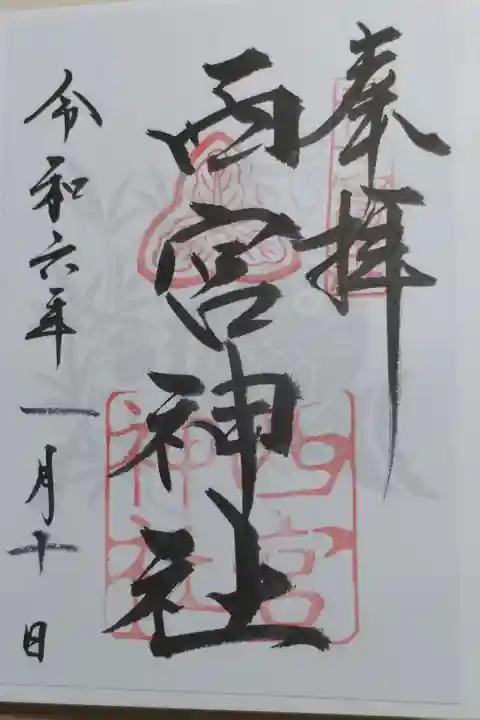 奉拝
西宮神社
西宮
神社
令和六年一月十日